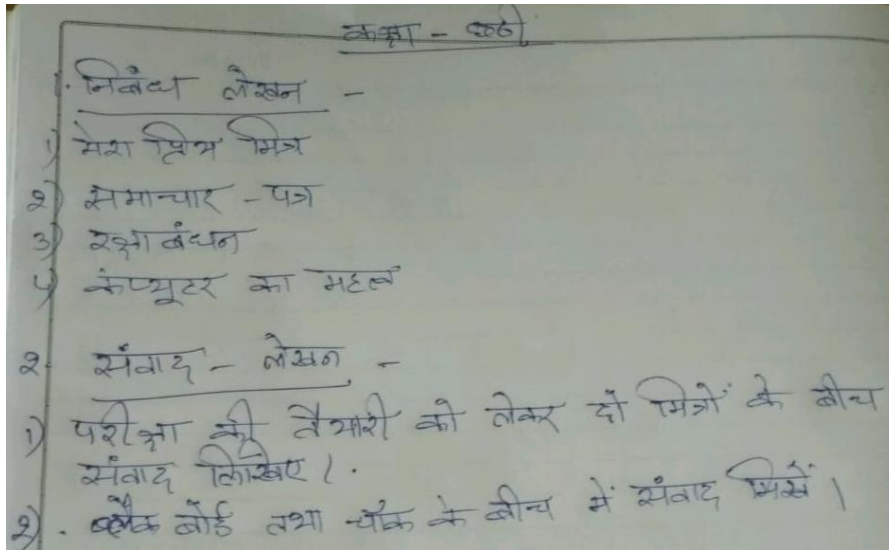 कक्षा - छठी
1. निबंध लेखन -
1) मेरा प्रिय मित्र
2) समाचार - पत्र
3) रक्षाबंधन
4) कंप्यूटर का महत्व
2. संवाद - लेखन -
1) परीक्षा की तैयारी को लेकर दो मित्रों के बीच
संवाद लिखिए।
2). ब्लैक बोर्ड तथा चॉक के बीच में संवाद लिखें।